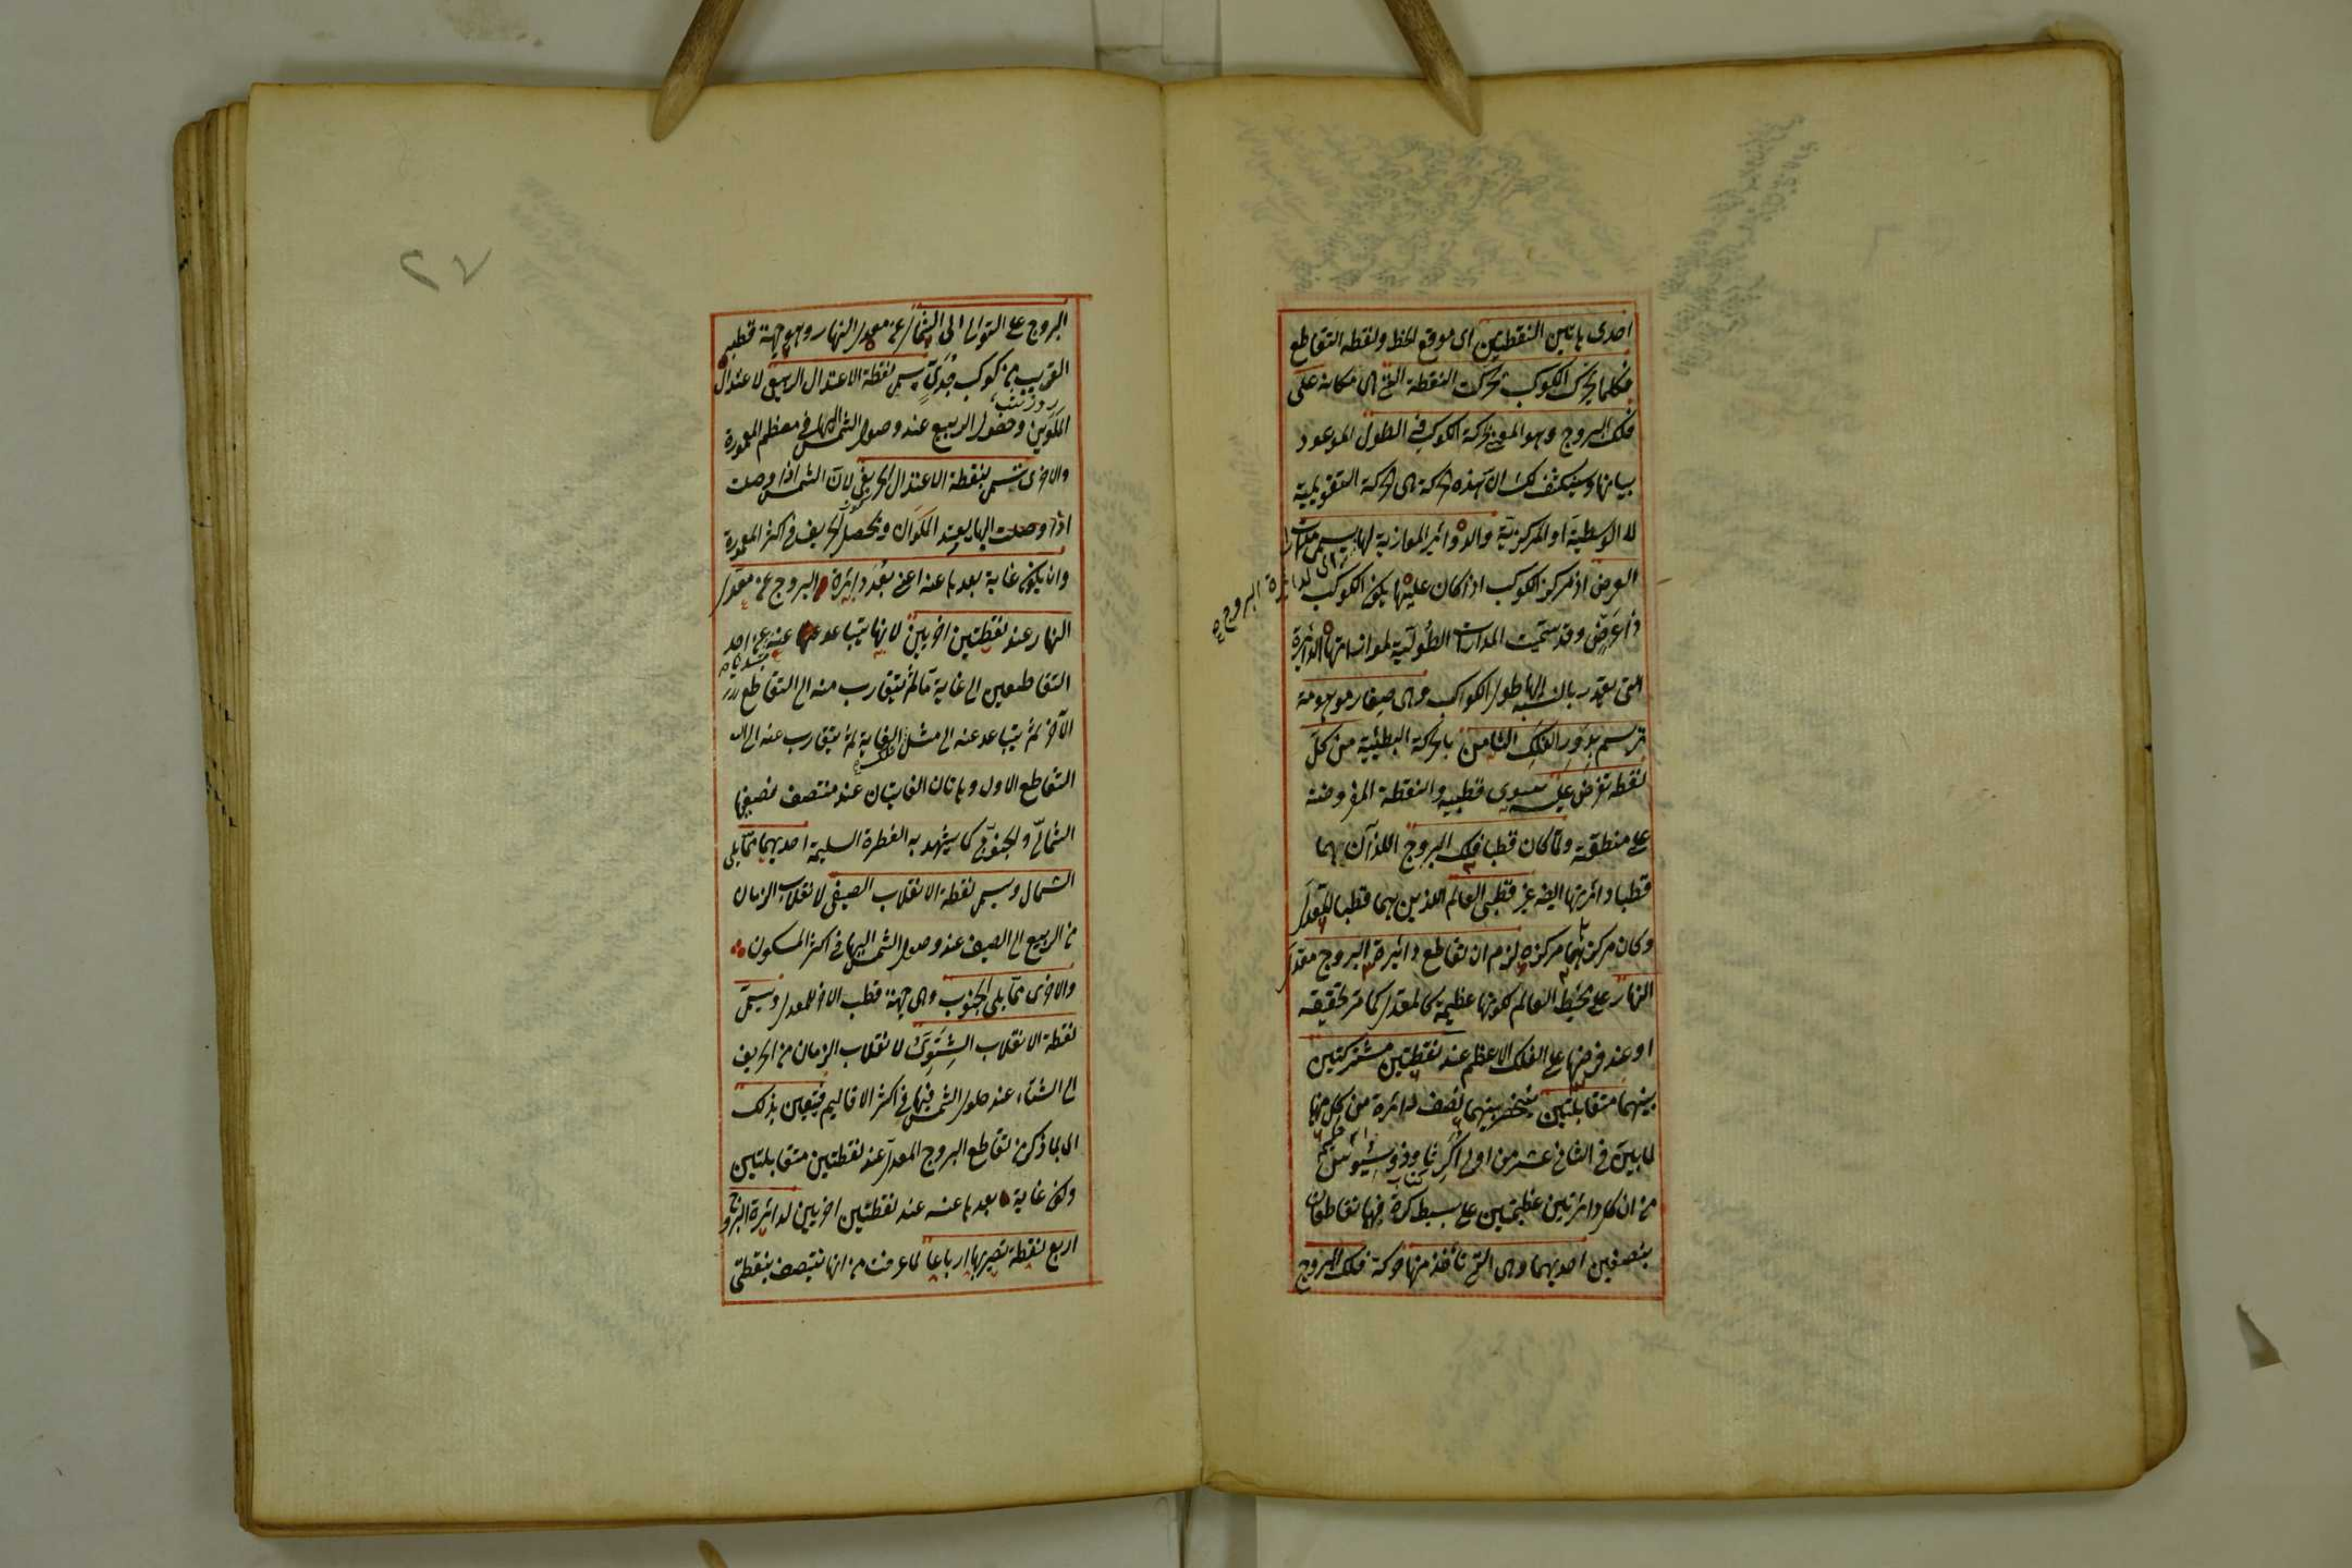 احدى هاتين النقطتين اى موقع الخط ونقطة التقاطع
فكلما تحرك الكوكب تحركت النقطة التى هى مكانه على
فلك البروج وهو المعنى بحركة الكوكب فى الطول الموعود
بيانها وسينكشف لك ان هذه الحركة هى الحركة التقويمية
لا الوسطية او المركزية والدوائر الموازية لها يسمى مدارات
العرض اذ مركز الكوكب اذا كان عليها يكون الكوكب
اى لدائرة البروج
ذا عرض وقد سميت المدارات الطولية لموازاتها الدائرة
التى يعتد بالنسبة اليها طول الكواكب وهى صغار موهومة
ترتسم بدور الفلك الثامن بالحركة البطيئة من كل
نقطة تفرض عليه سوى قطبيه والنقطة المفروضة
على منطقته ولما كان قطبا فلك البروج اللذان هما
قطبا دائرتها ايضا غير قطبى العالم الذين هما قطبا المعدل
وكان مركزهما مركزه لزم ان تقاطع دائرة البروج معدل
النهار على محيط العالم لكونها عظيمة كالمعدل كما مر تحقيقه
او عند فرضها على الفلك الاعظم عند نقطتين مشتركتين
بينهما متقابلتين بينهما نصف دائرة من كل منها
لما بين فى الثانى عشر من اولى اكر ثاوذوسيوس
من ان كل دائرتين عظيمتين على بسيط كرة فهما تتقاطعان
بنصفين احديهما وهى التى تأخذ منها حركة فلك البروج
٢٧
البروج على التوالى الى الشمال عن معدل النهار وهو جهة قطبه
القريب من كوكب جدى يسمى نقطة الاعتدال الربيعى لاعتدال
الملوين وحصول الربيع عند وصول الشمس اليها فى معظم المعمورة
والاخرى تسمى بنقطة الاعتدال الخريفى لان الشمس اذا وصلت
اذا وصلت اليها يعتدل الملوان ويحصل الخريف فى اكثر المعمورة
وان يكون غاية بعدها عنه اعنى بعد دائرة البروج عن معدل
النهار عند نقطتين اخريين لانها يتباعد عنه عن احد
التقاطعين الى غاية ما ثم يتقارب منه الى التقاطع
الآخر ثم يتباعد عنه الى مثل الغاية ثم يتقارب عنه الى
التقاطع الاول وهاتان الغايتان عند منتصف نصفيها
الشمالى والجنوبى كما يشهد به الفطرة السليمة احديهما مما يلى
الشمال ويسمى نقطة الانقلاب الصيفى لانقلاب الزمان
من الربيع الى الصيف عند وصول الشمس اليها فى اكثر المسكون
والاخرى مما يلى الجنوب وهى جهة قطب الاخر للمعدل ويسمى
نقطة الانقلاب الشتوى لانقلاب الزمان من الخريف
الى الشتاء عند حلول الشمس فيها فى اكثر الاقاليم فيتعين بذلك
اى بما ذكر من تقاطع البروج المعدل عند نقطتين متقابلتين
وكون غاية بعدها عنه عند نقطتين اخريين لدائرة البروج
اربع نقطة تصيرها ارباعا لما عرفت من انها تنتصف بنقطتى